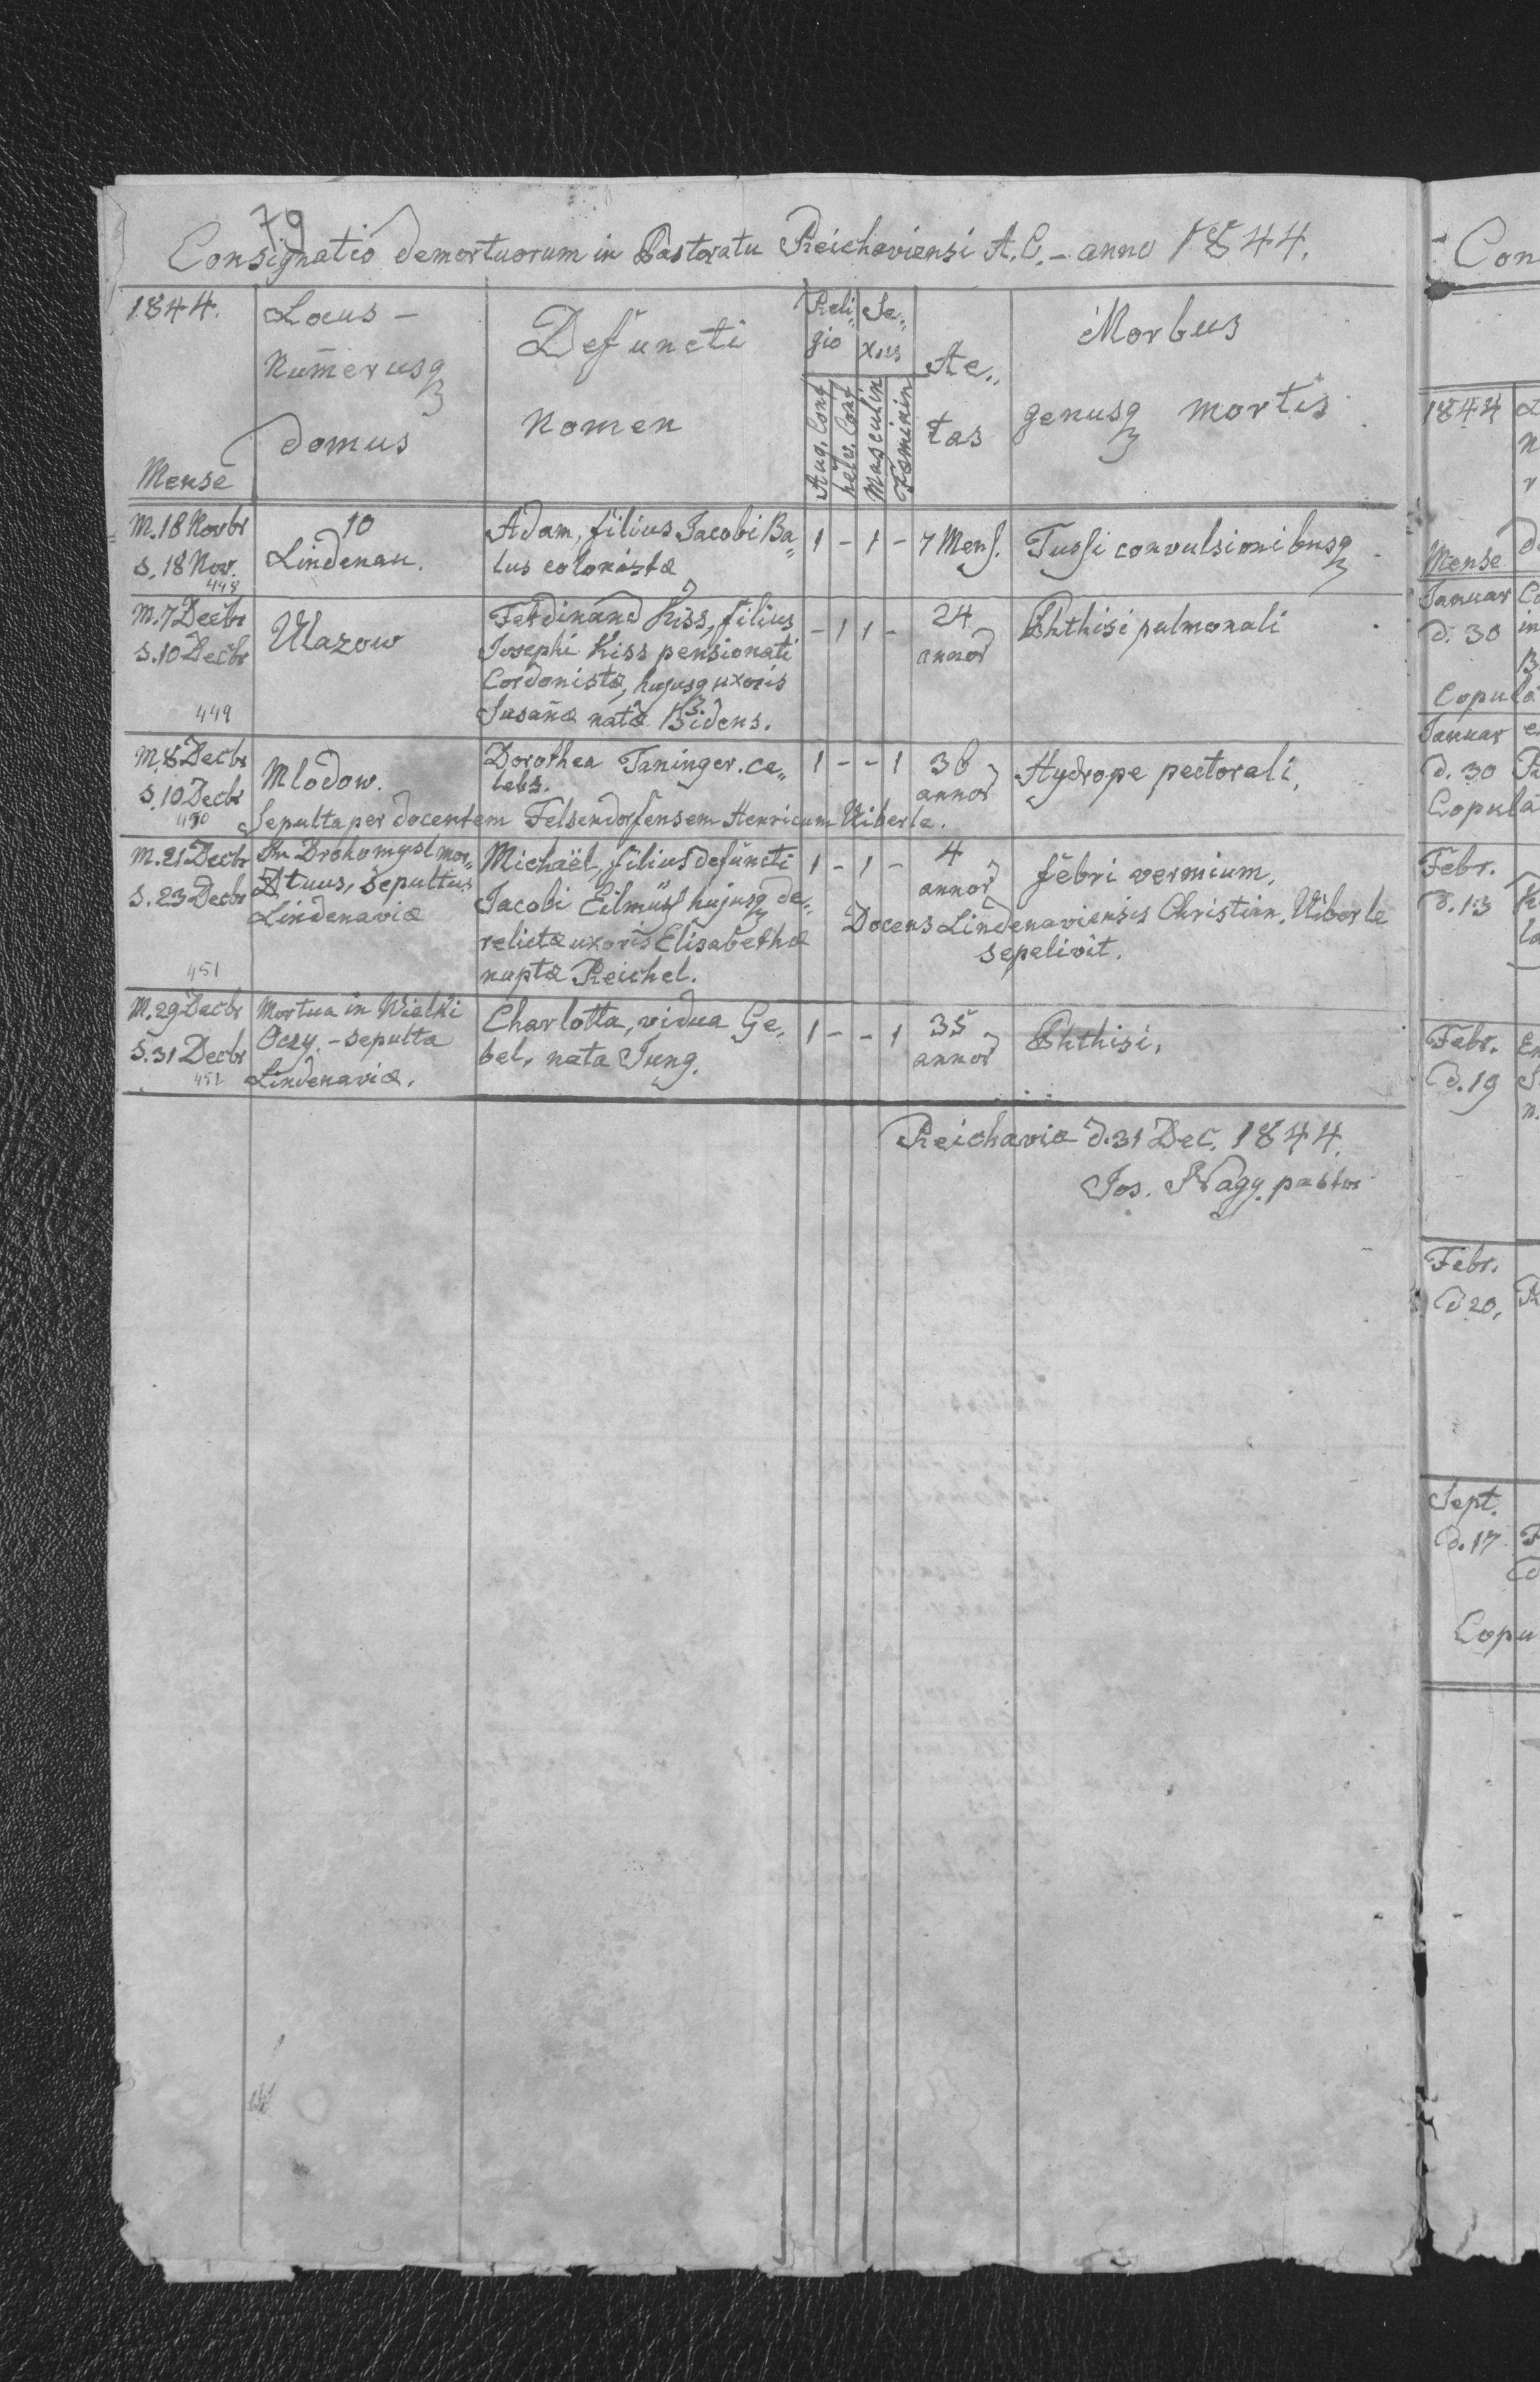 79
Consignatio demortuorum in Pastoratu Reichaviensi A.C. - anno 1844.
1844. Locus - Defuncti Reli„ Se„ Morbus
Num̄erusq gio xus Ae„
domus Nomen tas genusq mortis
Mense Aug. Conf helv. Conf Masculin Fœminin
M. 18 Novbr 10 Adam, filius Jacobi Ba„ 1 - 1 - 7 Mens. Tussi convulsionibusq
S. 18 Nov. Lindenau. lus colonistæ
448
M. 7 Decbr Ulazow Ferdinand Kiss, filius - 1 1 - 24 Phthisi pulmonali
S. 10 Decbr Josephi Kiss pensionati annor
Cordonistæ, hujusq uxoris
449 Susan̄æ natæ Bidens.
M. 8 Decbr Mlodow. Dorothea Taninger. cæ„ 1 - - 1 36 Hydrope pectorali,
S. 10 Decbr lebs. annor
450 Sepulta per docentem Felsendorfensem Henricum Uiberle.
M. 21 Decbr In Drohomysl mor„ Michaël, filius defuncti 1 - 1 - 4 febri vermium,
S. 23 Decbr tuus, sepultus Jacobi Eilmüs hujusq de„ annor
Lindenaviæ relictæ uxoris Elisabethæ Docens Lindenaviensis Christian. Uiberle
451 nuptæ Reichel. sepelivit.
M. 29 Decbr Mortua in Wielki Charlotta, vidua Ge„ 1 - - 1 35 Phthisi,
S. 31 Decbr Oczy. - sepulta bel, nata Jung. annor
452 Lindenaviæ.
Reichaviæ d. 31 Dec. 1844.
Jos. Nagy. pastor
Con
1844
Mense
Januar
d. 30
Copula
Januar
d. 30
Copula
Febr.
d. 13
Febr.
d. 19
Febr.
d 20,
Sept.
d. 17
Copu